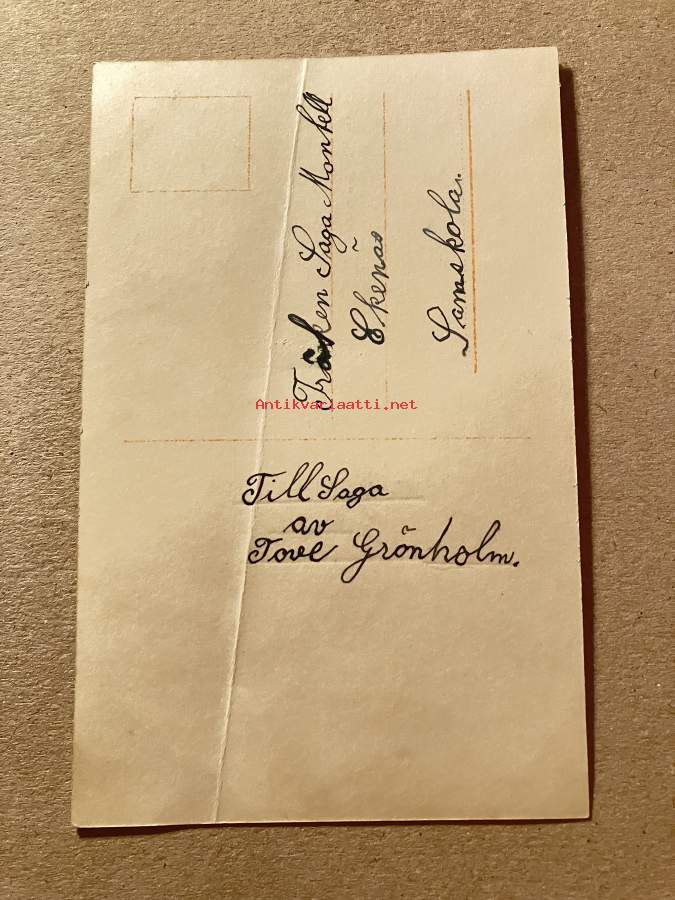 Fröken Saga Montell
Ekenäs
Samskola.
Antikvariaatti.net
Till Saga
av
Tove Grönholm.